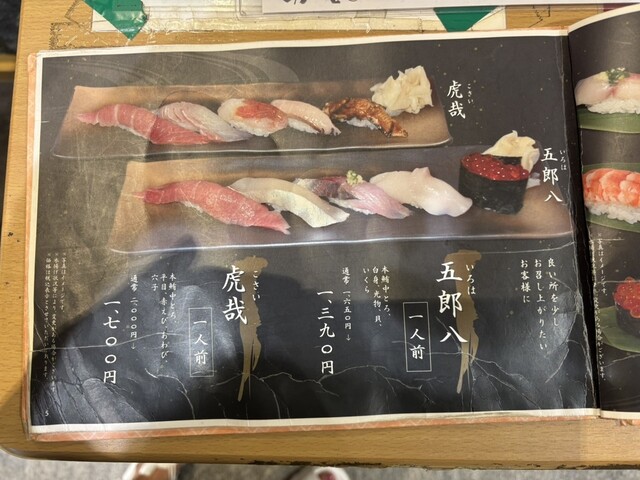 こさい
虎哉
いろは
五郎八
良い所を少し
お召し上がりたい
お客様に
いろは
五郎八
一人前
本鮪中とろ、
白身、光物、貝、
いくら
通常 一六五〇円↓
一、三九〇円
こさい
虎哉
一人前
本鮪中とろ
平目 赤えび あわび
穴子
通常 二、〇〇〇円↓
一、七〇〇円
※写真はイメージです。
5